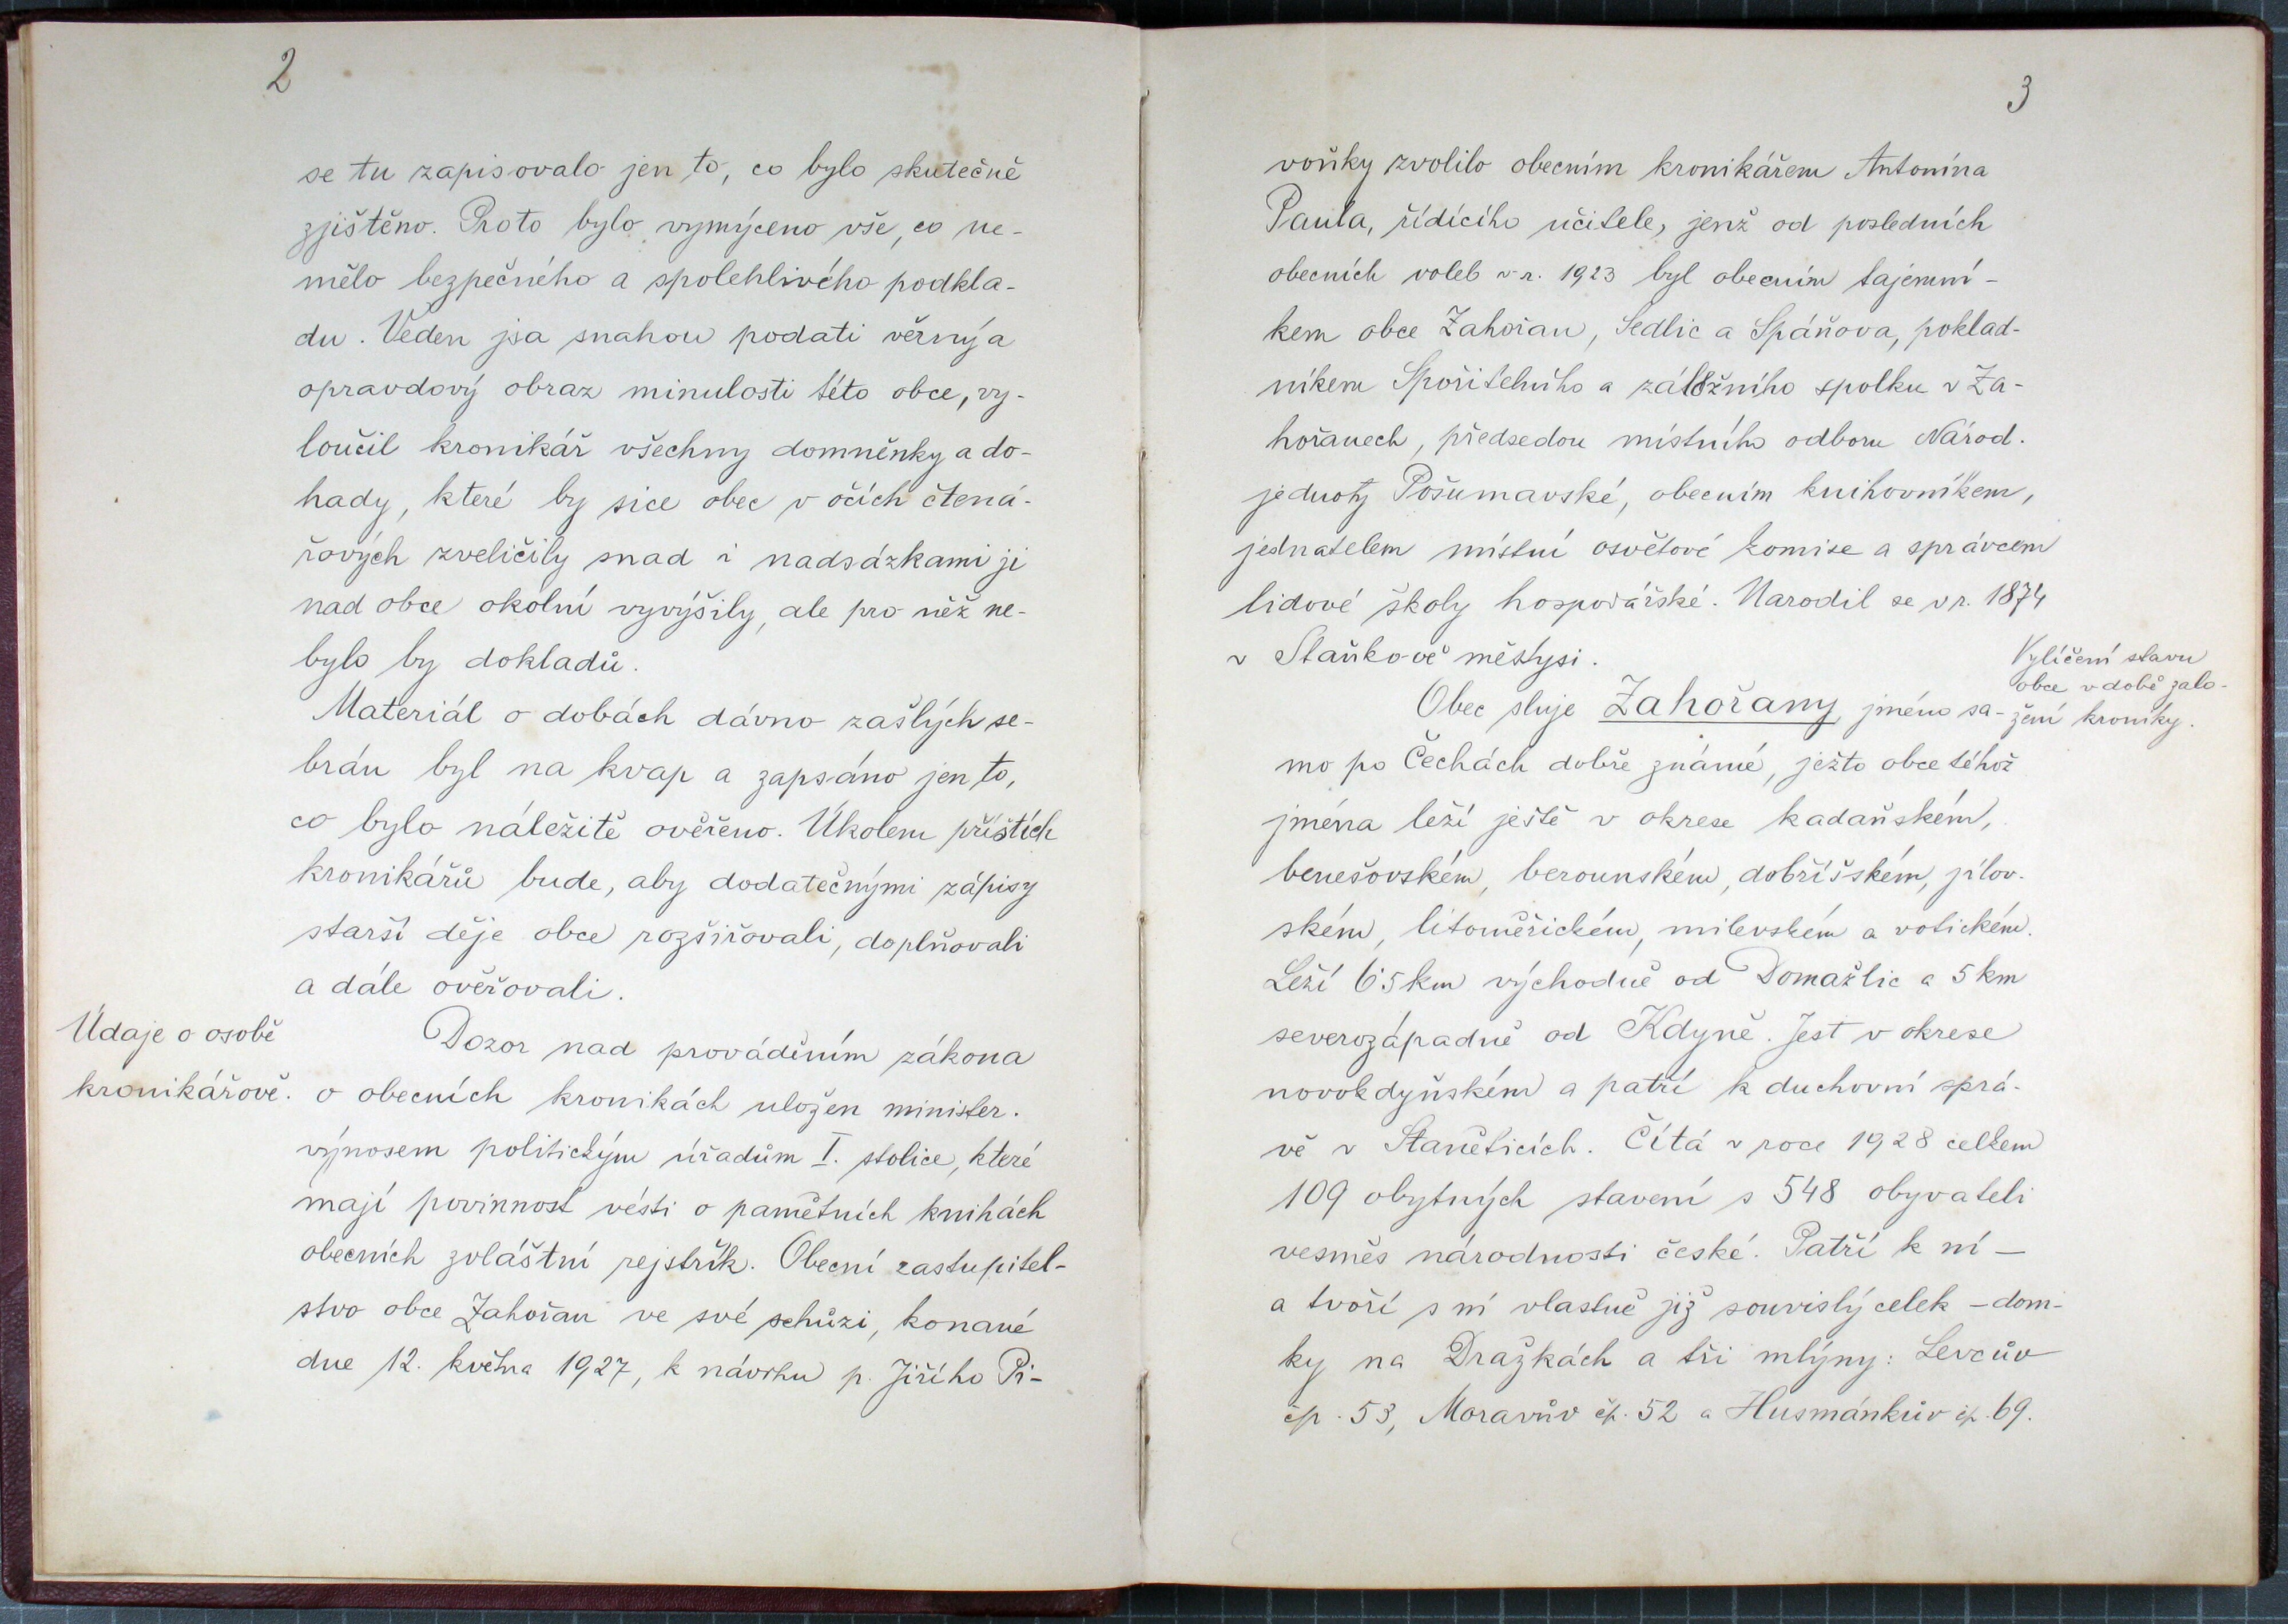 2
se tu zapisovalo jen to, co bylo skutečně
zjištěno. Proto bylo vymýceno vše, co ne-
mělo bezpečného a spolehlivého podkla-
du. Veden jsa snahou podati věrný a
opravdový obraz minulosti této obce, vy-
loučil kronikář všechny domněnky a do-
hady, které by sice obec v očích čtená-
řových zveličily snad i nadsázkami ji
nad obce okolní vyvýšily, ale pro něž ne-
bylo by dokladů.
Materiál o dobách dávno zašlých se-
brán byl na kvap a zapsáno jen to,
co bylo náležitě ověřeno. Úkolem příštích
kronikářů bude, aby dodatečnými zápisy
starší děje obce rozšiřovali, doplňovali
a dále ověřovali.
Údaje o osobě
kronikářově.
Dozor nad prováděním zákona
o obecních kronikách uložen minister.
výnosem politickým úřadům I. stolice, které
mají povinnost vésti o pamětních knihách
obecních zvláštní rejstřík. Obecní zastupitel-
stvo obce Zahořan ve své schůzi, konané
dne 12. května 1927, k návrhu p. Jiřího Pi-
3
voňky zvolilo obecním kronikářem Antonína
Paula, řídícího učitele, jenž od posledních
obecních voleb v r. 1923 byl obecním tajemní-
kem obce Zahořan, Sedlic a Spáňova, poklad-
níkem Spořitelního a záložního spolku v Za-
hořanech, předsedou místního odboru Národ.
jednoty Pošumavské, obecním knihovníkem,
jednatelem místní osvětové komise a správcem
lidové školy hospodářské. Narodil se v r. 1874
v Staňkově městysi.
Vylíčení stavu
obce v době zalo-
žení kroniky.
Obec sluje Zahořany, jméno sa-
mo po Čechách dobře známé, ježto obce téhož
jména leží ještě v okrese kadaňském,
benešovském, berounském, dobříšském, jílov-
ském, litoměřickém, milevském a votickém.
Leží 6·5 km východně od Domažlic a 5 km
severozápadně od Kdyně. Jest v okrese
novokdyňském a patří k duchovní sprá-
vě v Staněticích. Čítá v roce 1928 celkem
109 obytných stavení s 548 obyvateli
vesměs národnosti české. Patří k ní —
a tvoří s ní vlastně již souvislý celek — dom-
ky na Dražkách a tři mlýny: Levcův
čp. 53, Moravův čp. 52 a Husmánkův čp. 69.